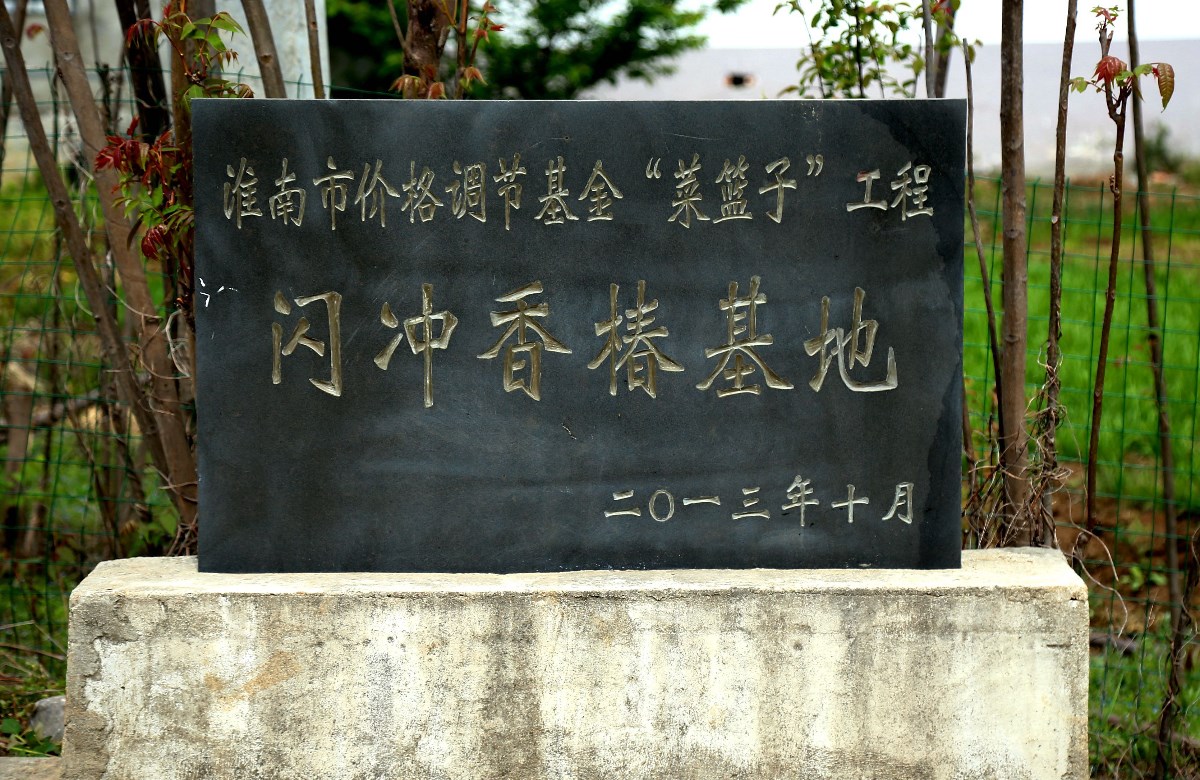 淮南市价格调节基金“菜篮子”工程
闪冲香椿基地
二〇一三年十月